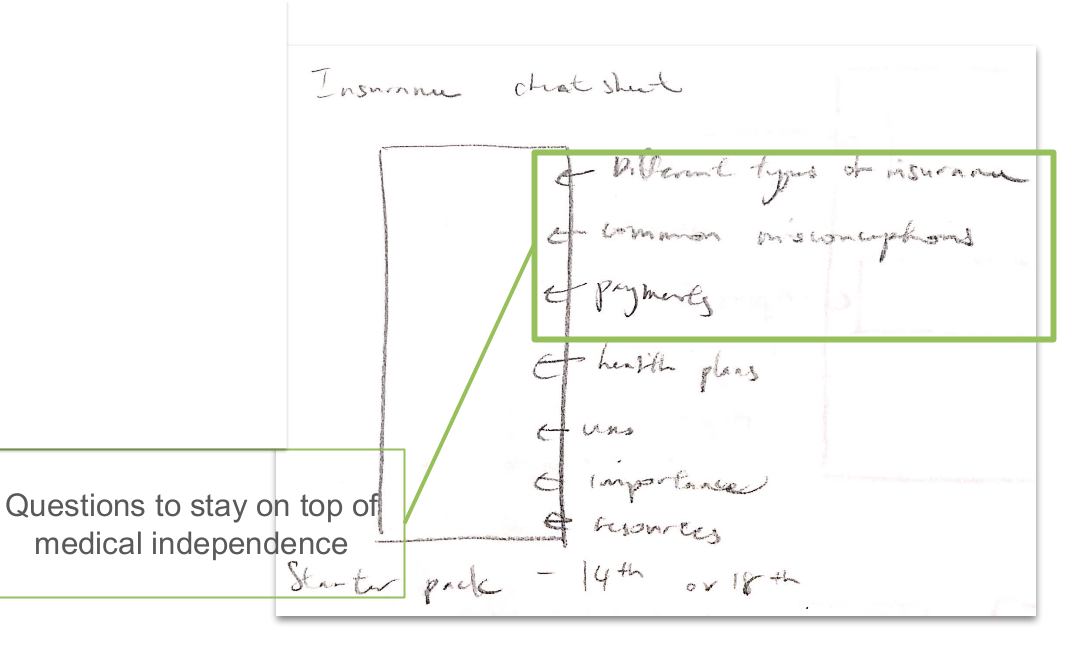 Insurance cheat sheet
Different types of insurance
common misconceptions
payments
health plans
uses
importance
resources
Questions to stay on top of
medical independence
Starter pack - 14th or 18th